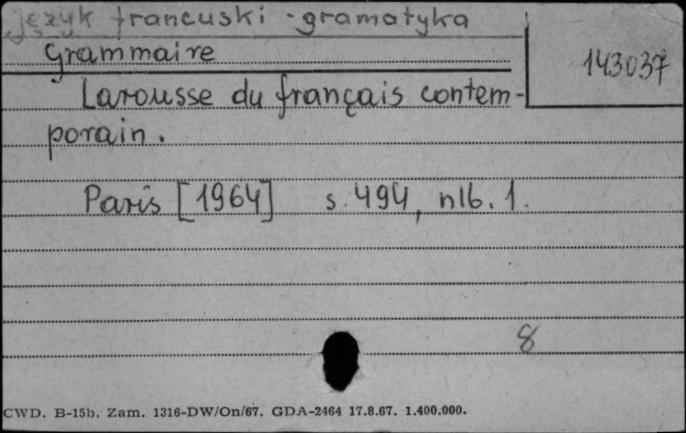 język francuski - gramatyka
Grammaire
143037
Larousse du français contem-
porain.
Paris [1964] s. 494, nlb. 1.
8
CWD. B-15b. Zam. 1316-DW/On/67. GDA-2464 17.8.67. 1.400.000.